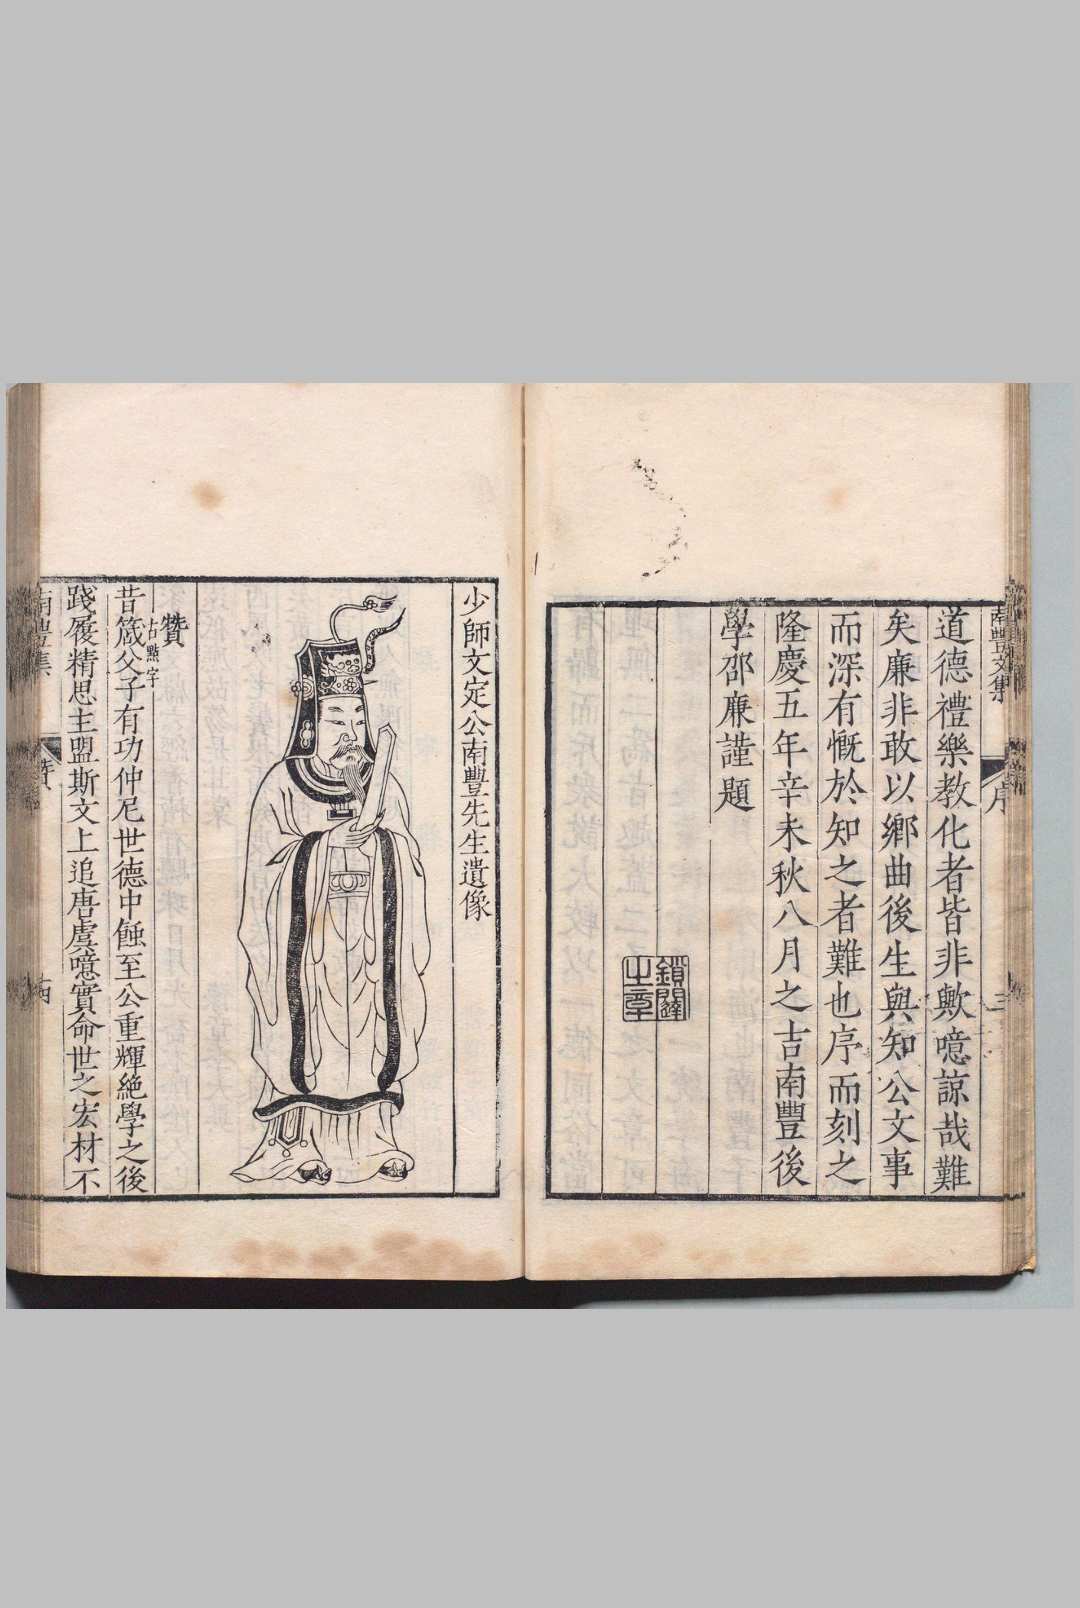 南豐文集
序
三
道德禮樂教化者皆非歟噫諒哉難
矣廉非敢以鄉曲後生與知公文事
而深有慨於知之者難也序而刻之
隆慶五年辛未秋八月之吉南豐後
學邵廉謹題
鎖闥
之章
少師文定公南豐先生遺像
贊
古點字
昔箴父子有功仲尼世德中蝕至公重輝絶學之後
踐履精思主盟斯文上追唐虞噫實命世之宏材不
南豐集
贊
四